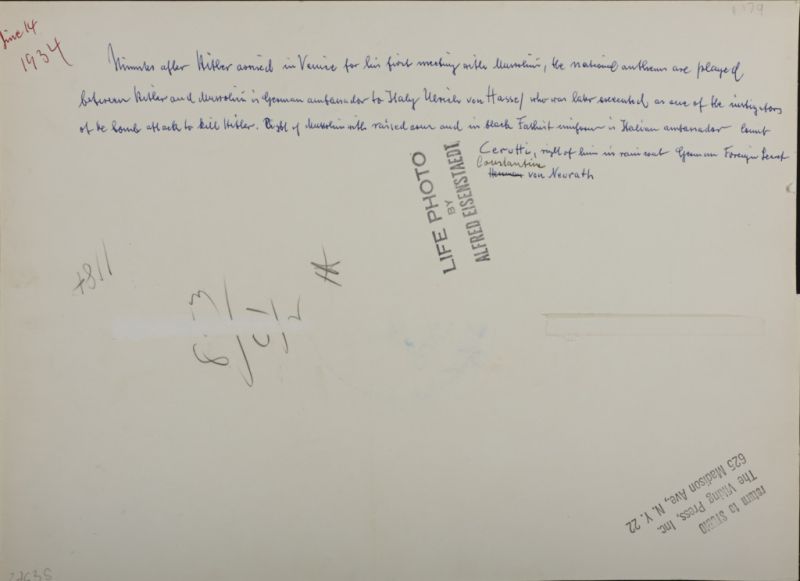 June 14
1934
Minutes after Hitler arrived in Venice for his first meeting with Mussolini, the national anthems are played
between Hitler and Mussolini is German ambassador to Italy Ulrich von Hassel who was later executed as one of the instigators
of the bomb attack to kill Hitler. Right of Mussolini with raised arm and in black Fashist uniform is Italian ambassador Count
Cerutti, right of him in raincoat German Foreign Secret
Constantin
Herman von Neurath
LIFE PHOTO
BY
ALFRED EISENSTAEDT
return to STUDIO
The Viking Press, Inc.
625 Madison Ave., N. Y. 22